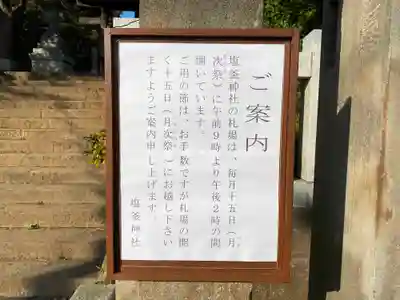 ご案内
塩釜神社の札場は、毎月十五日(月
次祭)に午前9時より午後2時の間
開いています。
ご用の節は、お手数ですが札場の開
く十五日(月次祭)にお越し下さい
ますようご案内申し上げます。
塩釜神社